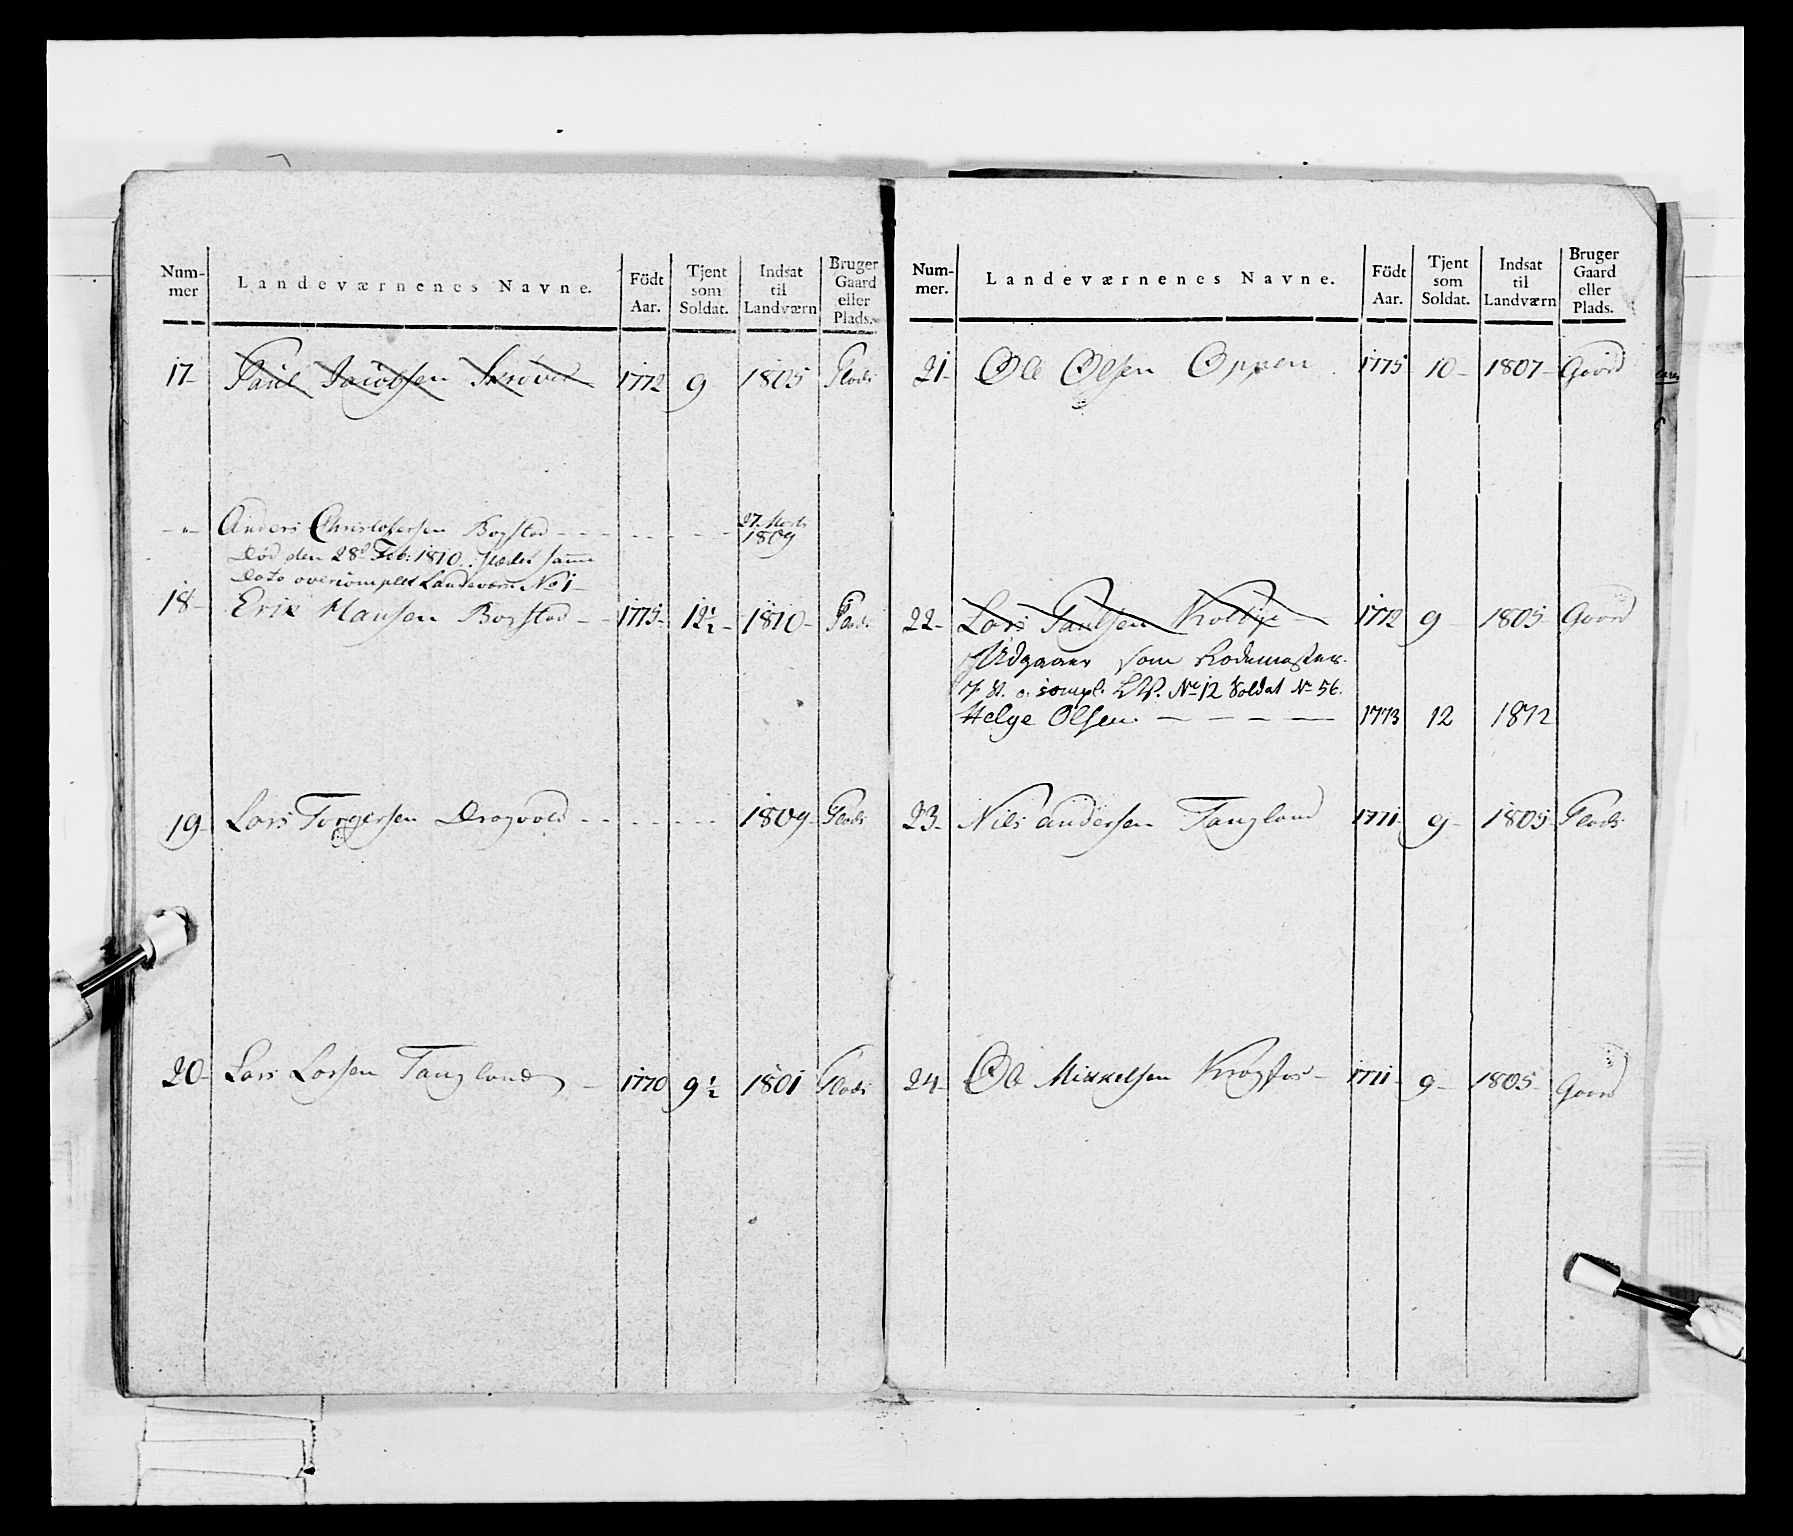 Num-mer Landeværnenes Navne. Födt Aar. Tjent som Soldat. Indsat til Landværn Bruger Gaard eller Plads.
17- Paul Jacobsen 1772 9 1805 Plads
-"- Anders Christofersen Bogstad - - - - - - - 27. Marts 1809
Død den 28d Feb: 1810. samme
Dato overcomplet Landeværn No 1
18- Erik Hansen Bogstad - - 1775- 12½- 1810- Plads
19- Lars Torgersen Dragvold - - - - - - 1809- Plads
20- Lars Larsen Tangland - 1770 9½ 1801 Plads
Num-mer. Landeværnenes Navne. Födt Aar. Tjent som Soldat. Indsat til Landværn Bruger Gaard eller Plads.
21- Ole Olsen Oppen 1775 10- 1807- Gaard
22- Lars Paulsen 1772 9- 1805 Gaard
Udgaaer som Rodemester.
o. compl. LV. No 12 Soldat No 56.
Helge Olsen - - - - 1773 12 1812
23- Nils Andersen Tangland 1771- 9- 1805- Plads
24- Ole Mikkelsen Krogfos- 1771- 9- 1805- Gaard